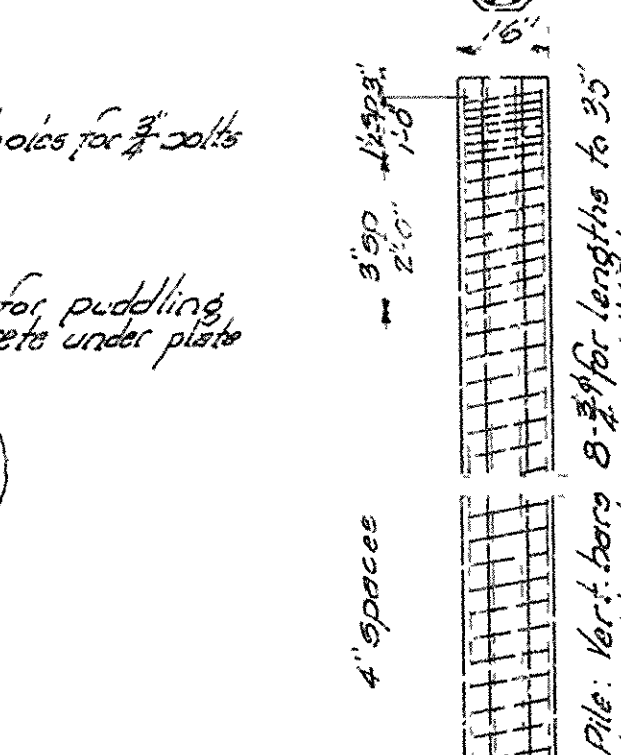 16"
for 3/4" bolts
for puddling
under plate
3"
1'-0"
3" sp
2'-0"
4" spaces
Pile: Vert. bars 8-3/4"φ for lengths to 35'